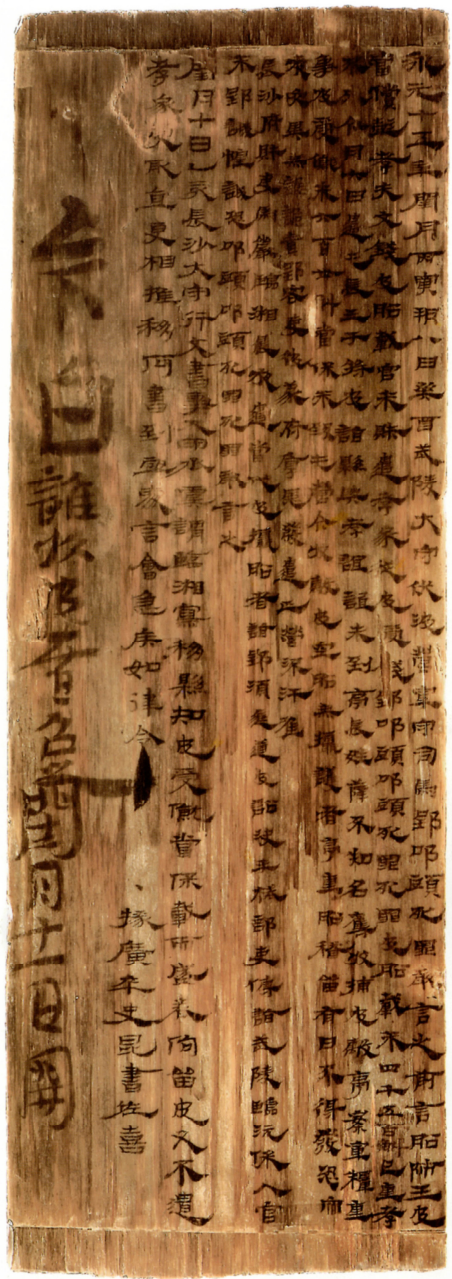 永元十五年閏月丙寅朔八日癸酉武陵大守伏波營軍守司馬郢叩頭死罪敢言之前言船師王皮
當償彭孝夫文錢皮船載官米財遣孝家從皮受錢郢叩頭叩頭死罪死罪皮船載米四千五百斛已重孝
不來今月六日遣屯長王于將皮詣縣與孝誼誼未到亭長姓薛不知名奪收捕皮毆亭案重糧重
事皮受僦米六百卅斛當保米致屯營今收毆皮孤船無攝護者亭重船稽留有日不得發恐宿
夜災異無誰詭責郢客吏被蒙府厚恩發遣正營流汗唯
長沙府財吏馬嚴臨湘晨夜遣當代皮攝船者詣郢須進道皮訟決手械部吏傳詣武陵臨沅保入官
米郢誠惶誠恐叩頭叩頭死罪死罪敢言之
閏月十日乙亥長沙大守行文書事大守丞虞謂臨湘寫移縣知皮受僦當保載而盛卷佝留皮又不遣
孝家受取直更相推移何書到亟處言會急疾如律令 掾廣卒史昆書佐喜
今白 誰收皮者召 閏月十一日開